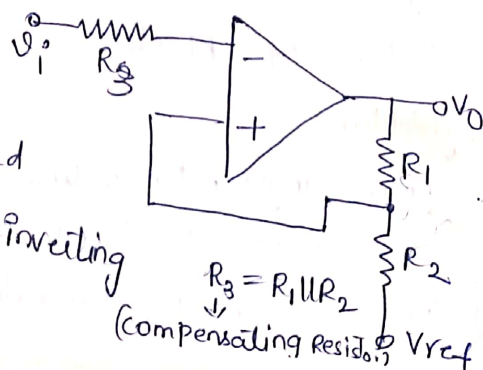 vi
R3
−
+
oVo
R1
d
inveiting
R2
R3 = R1 || R2
(Compensating Resisto
Vref